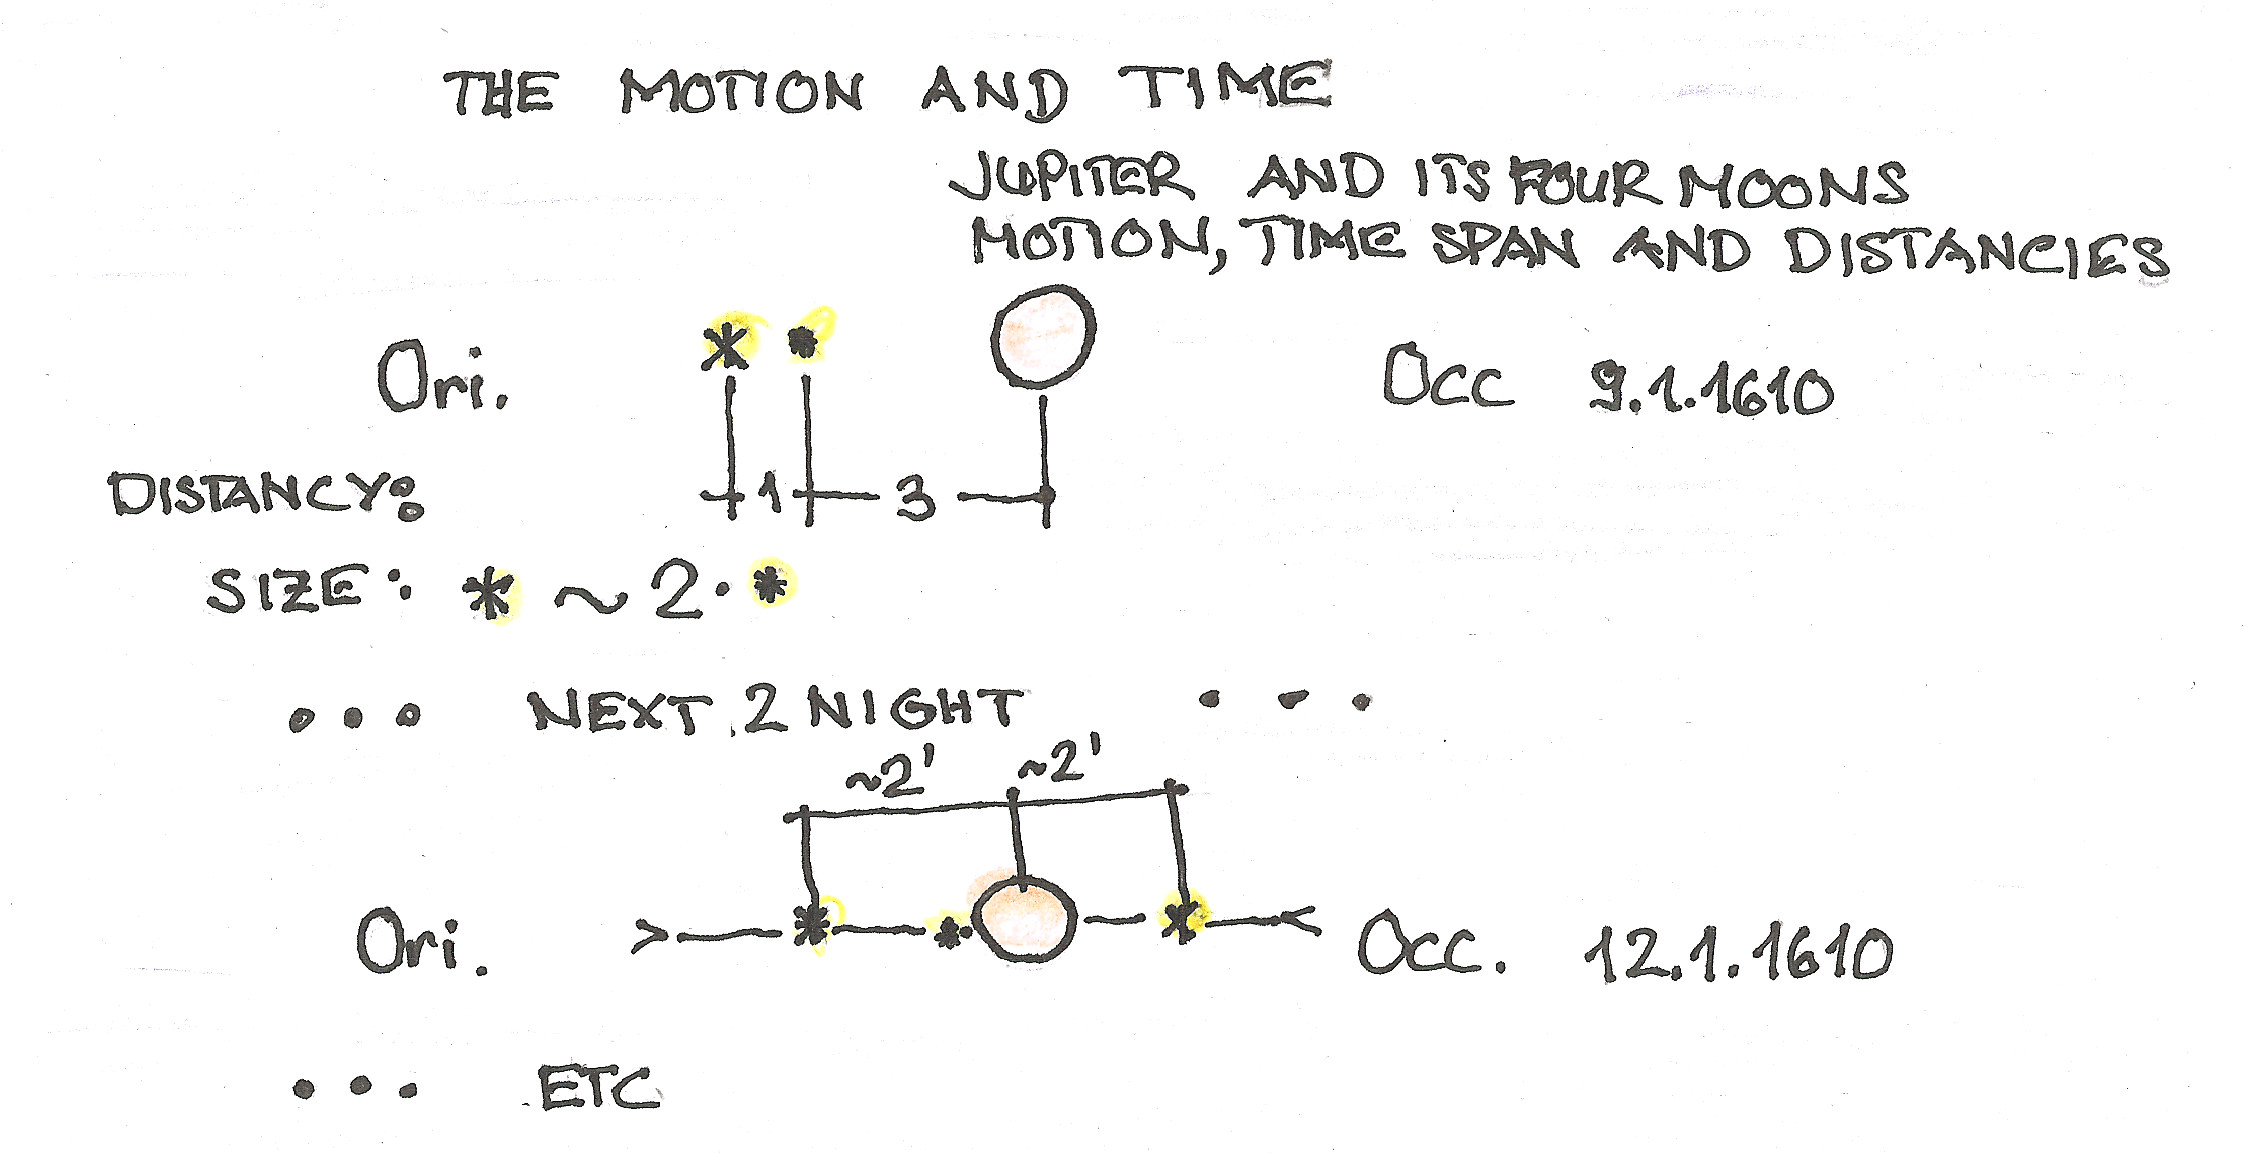 THE MOTION AND TIME
JUPITER AND ITS FOUR MOONS
MOTION, TIME SPAN AND DISTANCIES
Ori. * * Occ 9.1.1610
DISTANCY: 1 3
SIZE: * ~ 2 · *
... NEXT 2 NIGHT ...
~2' ~2'
Ori. > * * * < Occ. 12.1.1610
... ETC